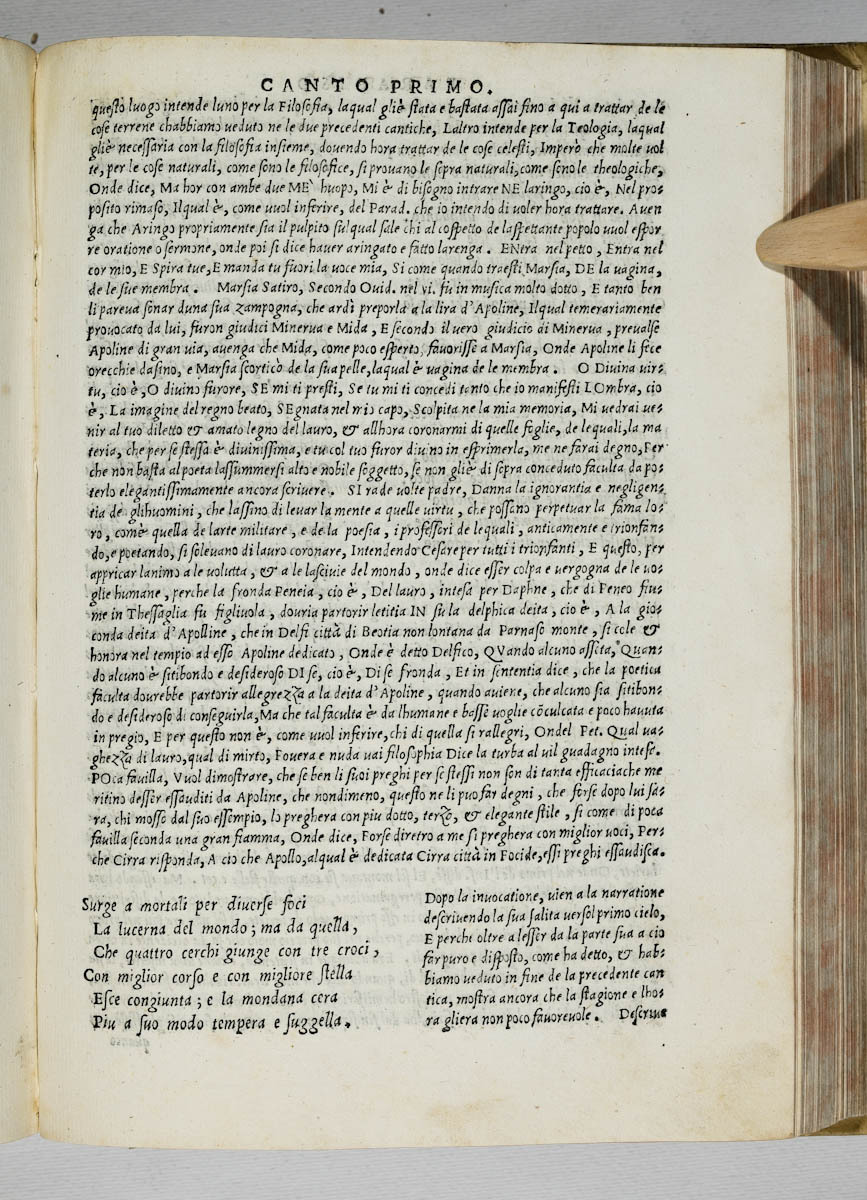 CANTO PRIMO.
questo luogo intende luno per la Filosofia, laqual gliè stata e bastata assai fino a qui a trattar de le
cose terrene chabbiamo veduto ne le due precedenti cantiche, Laltro intende per la Teologia, laqual
gliè necessaria con la filosofia insieme, douendo hora trattar de le cose celesti, Imperò che molte uol
te, per le cose naturali, come sono le filosofice, si prouano le sopra naturali, come sono le theologiche,
Onde dice, Ma hor con ambe due ME` huopo, Mi è di bisogno intrare NE laringo, cio è, Nel pro-
posito rimaso, Ilqual è, come uuol inferire, del Parad. che io intendo di uoler hora trattare. Auen
ga che Aringo propriamente sia il pulpito sulqual sale chi al cospetto de laspettante popolo uuol espor
re oratione o sermone, onde poi si dice hauer aringato e fatto larenga. ENtra nel petto, Entra nel
cor mio, E Spira tue, E manda tu fuori la uoce mia, Si come quando traesti Marsia, DE la uagina,
de le sue membra. Marsia Satiro, Secondo Ouid. nel vi. fu in musica molto dotto, E tanto ben
li pareua sonar duna sua zampogna, che ardì preporla a la lira d'Apoline, Ilqual temerariamente
prouocato da lui, furon giudici Minerua e Mida, E secondo il uero giudicio di Minerua, preualse
Apoline di gran uia, auenga che Mida, come poco esperto, fauorisse a Marsia, Onde Apoline li fece
orecchie dasino, e Marsia scorticò de la sua pelle, laqual è uagina de le membra. O Diuina uir-
tu, cio è, O diuino furore, SE mi ti presti, Se tu mi ti concedi tanto che io manifesti LOmbra, cio
è, La imagine del regno beato, SEgnata nel mio capo, Scolpita ne la mia memoria, Mi uedrai ue-
nir al tuo diletto & amato legno del lauro, & allhora coronarmi di quelle foglie, de lequali, la ma
teria, che per se stessa è diuinissima, e tu col tuo furor diuino in esprimerla, me ne farai degno, Per
che non basta al poeta lassummersi alto e nobile soggetto, se non gliè di sopra conceduto faculta da po-
terlo elegantissimamente ancora scriuere. SI rade uolte padre, Danna la ignorantia e negligen-
tia de glihuomini, che lassino di leuar la mente a quelle uirtu, che possono perpetuar la fama lo-
ro, comè quella de larte militare, e de la poesia, i professori de lequali, anticamente e trionfan-
do, e poetando, si soleuano di lauro coronare, Intendendo Cesare per tutti i trionfanti, E questo, per
appricar lanimo a le uolutta, & a le lasciuie del mondo, onde dice esser colpa e uergogna de le uo-
glie humane, perche la fronda Peneia, cio è, Del lauro, intesa per Daphne, che di Peneo fiu-
me in Thessaglia fu figliuola, douria partorir letitia IN su la delphica deita, cio è, A la gio-
conda deita d'Apolline, che in Delfi città di Beotia non lontana da Parnaso monte, si cole &
honora nel tempio ad esso Apoline dedicato, Onde è detto Delfico, QVando alcuno asseta, Quan-
do alcuno è sitibondo e desideroso DI se, cio è, Di se fronda, Et in sententia dice, che la poetica
faculta dourebbe partorir allegrezza a la deita d'Apoline, quando auiene, che alcuno sia sitibon-
do e desideroso di conseguirla, Ma che tal faculta è da lhumane e basse uoglie cōculcata e poco hauuta
in pregio, E per questo non è, come uuol inferire, chi di quella si rallegri, Ondel Pet. Qual ua-
ghezza di lauro, qual di mirto, Pouera e nuda uai filosophia Dice la turba al uil guadagno intesa.
POca fauilla, Vuol dimostrare, che se ben li suoi preghi per se stessi non son di tanta efficacia che me
ritino desser essauditi da Apoline, che nondimeno, questo ne li puo far degni, che forse dopo lui sa-
ra, chi mosso dal suo essempio, lo preghera con piu dotto, terzo, & elegante stile, si come di poca
fauilla seconda una gran fiamma, Onde dice, Forse diretro a me si preghera con miglior uoci, Per-
che Cirra risponda, A cio che Apollo, alqual è dedicata Cirra città in Focide, essi preghi essaudisca.
Surge a mortali per diuerse foci
La lucerna del mondo; ma da quella,
Che quattro cerchi giunge con tre croci,
Con miglior corso e con migliore stella
Esce congiunta; e la mondana cera
Piu a suo modo tempera e suggella.
Dopo la inuocatione, uien a la narratione
descriuendo la sua salita uersol primo cielo,
E perche oltre a lesser da la parte sua a cio
far puro e disposto, come ha detto, & hab-
biamo ueduto in fine de la precedente can
tica, mostra ancora che la stagione e lho-
ra gliera non poco fauoreuole. Descriue